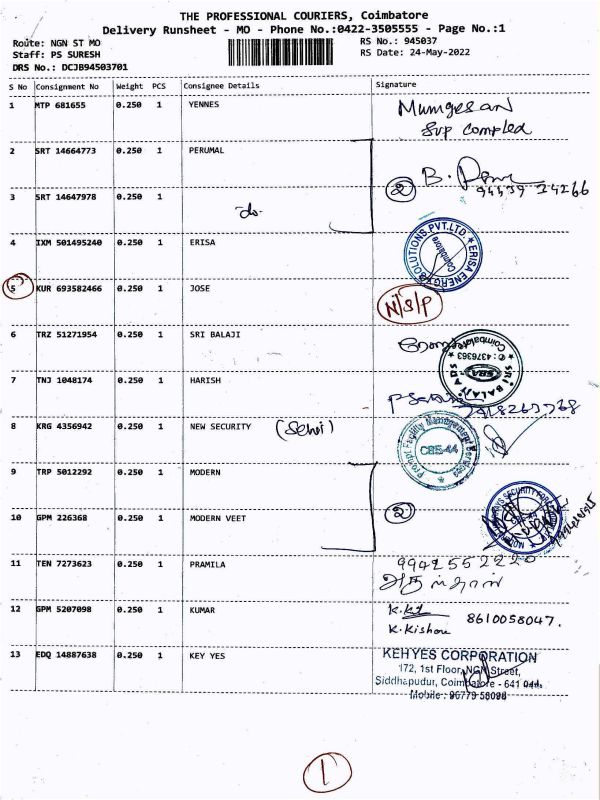 THE PROFESSIONAL COURIERS, Coimbatore
Delivery Runsheet - MO - Phone No.:0422-3505555 - Page No.:1
Route: NGN ST MO
RS No.: 945037
Staff: PS SURESH
RS Date: 24-May-2022
DRS No.: DCJB94503701
S No Consignment No Weight PCS Consignee Details Signature
1 MTP 681655 0.250 1 YENNES Murugesan
Svp
2 SRT 14664773 0.250 1 PERUMAL
2 B.
3 SRT 14647978 0.250 1 -do-
4 IXM 501495240 0.250 1 ERISA
ERISA ENERGY SOLUTIONS PVT.LTD. Coimbatore
5 KUR 693582466 0.250 1 JOSE N/S/P
6 TRZ 51271954 0.250 1 SRI BALAJI
SRI BALAJI ADS Coimbatore : 4376363 SBA
7 TNJ 1048174 0.250 1 HARISH
8 KRG 4356942 0.250 1 NEW SECURITY
Prompt Facility Management Services CBE-44
9 TRP 5012292 0.250 1 MODERN
2
10 GPM 226368 0.250 1 MODERN VEET
11 TEN 7273623 0.250 1 PRAMILA
12 GPM 5207098 0.250 1 KUMAR
K.Kishou 8610058047.
13 EDQ 14887638 0.250 1 KEY YES
KEHYES CORPORATION
172, 1st Floor, NGN Street,
Siddhapudur, Coimbatore - 641 044.
Mobile : 96779 58098
1